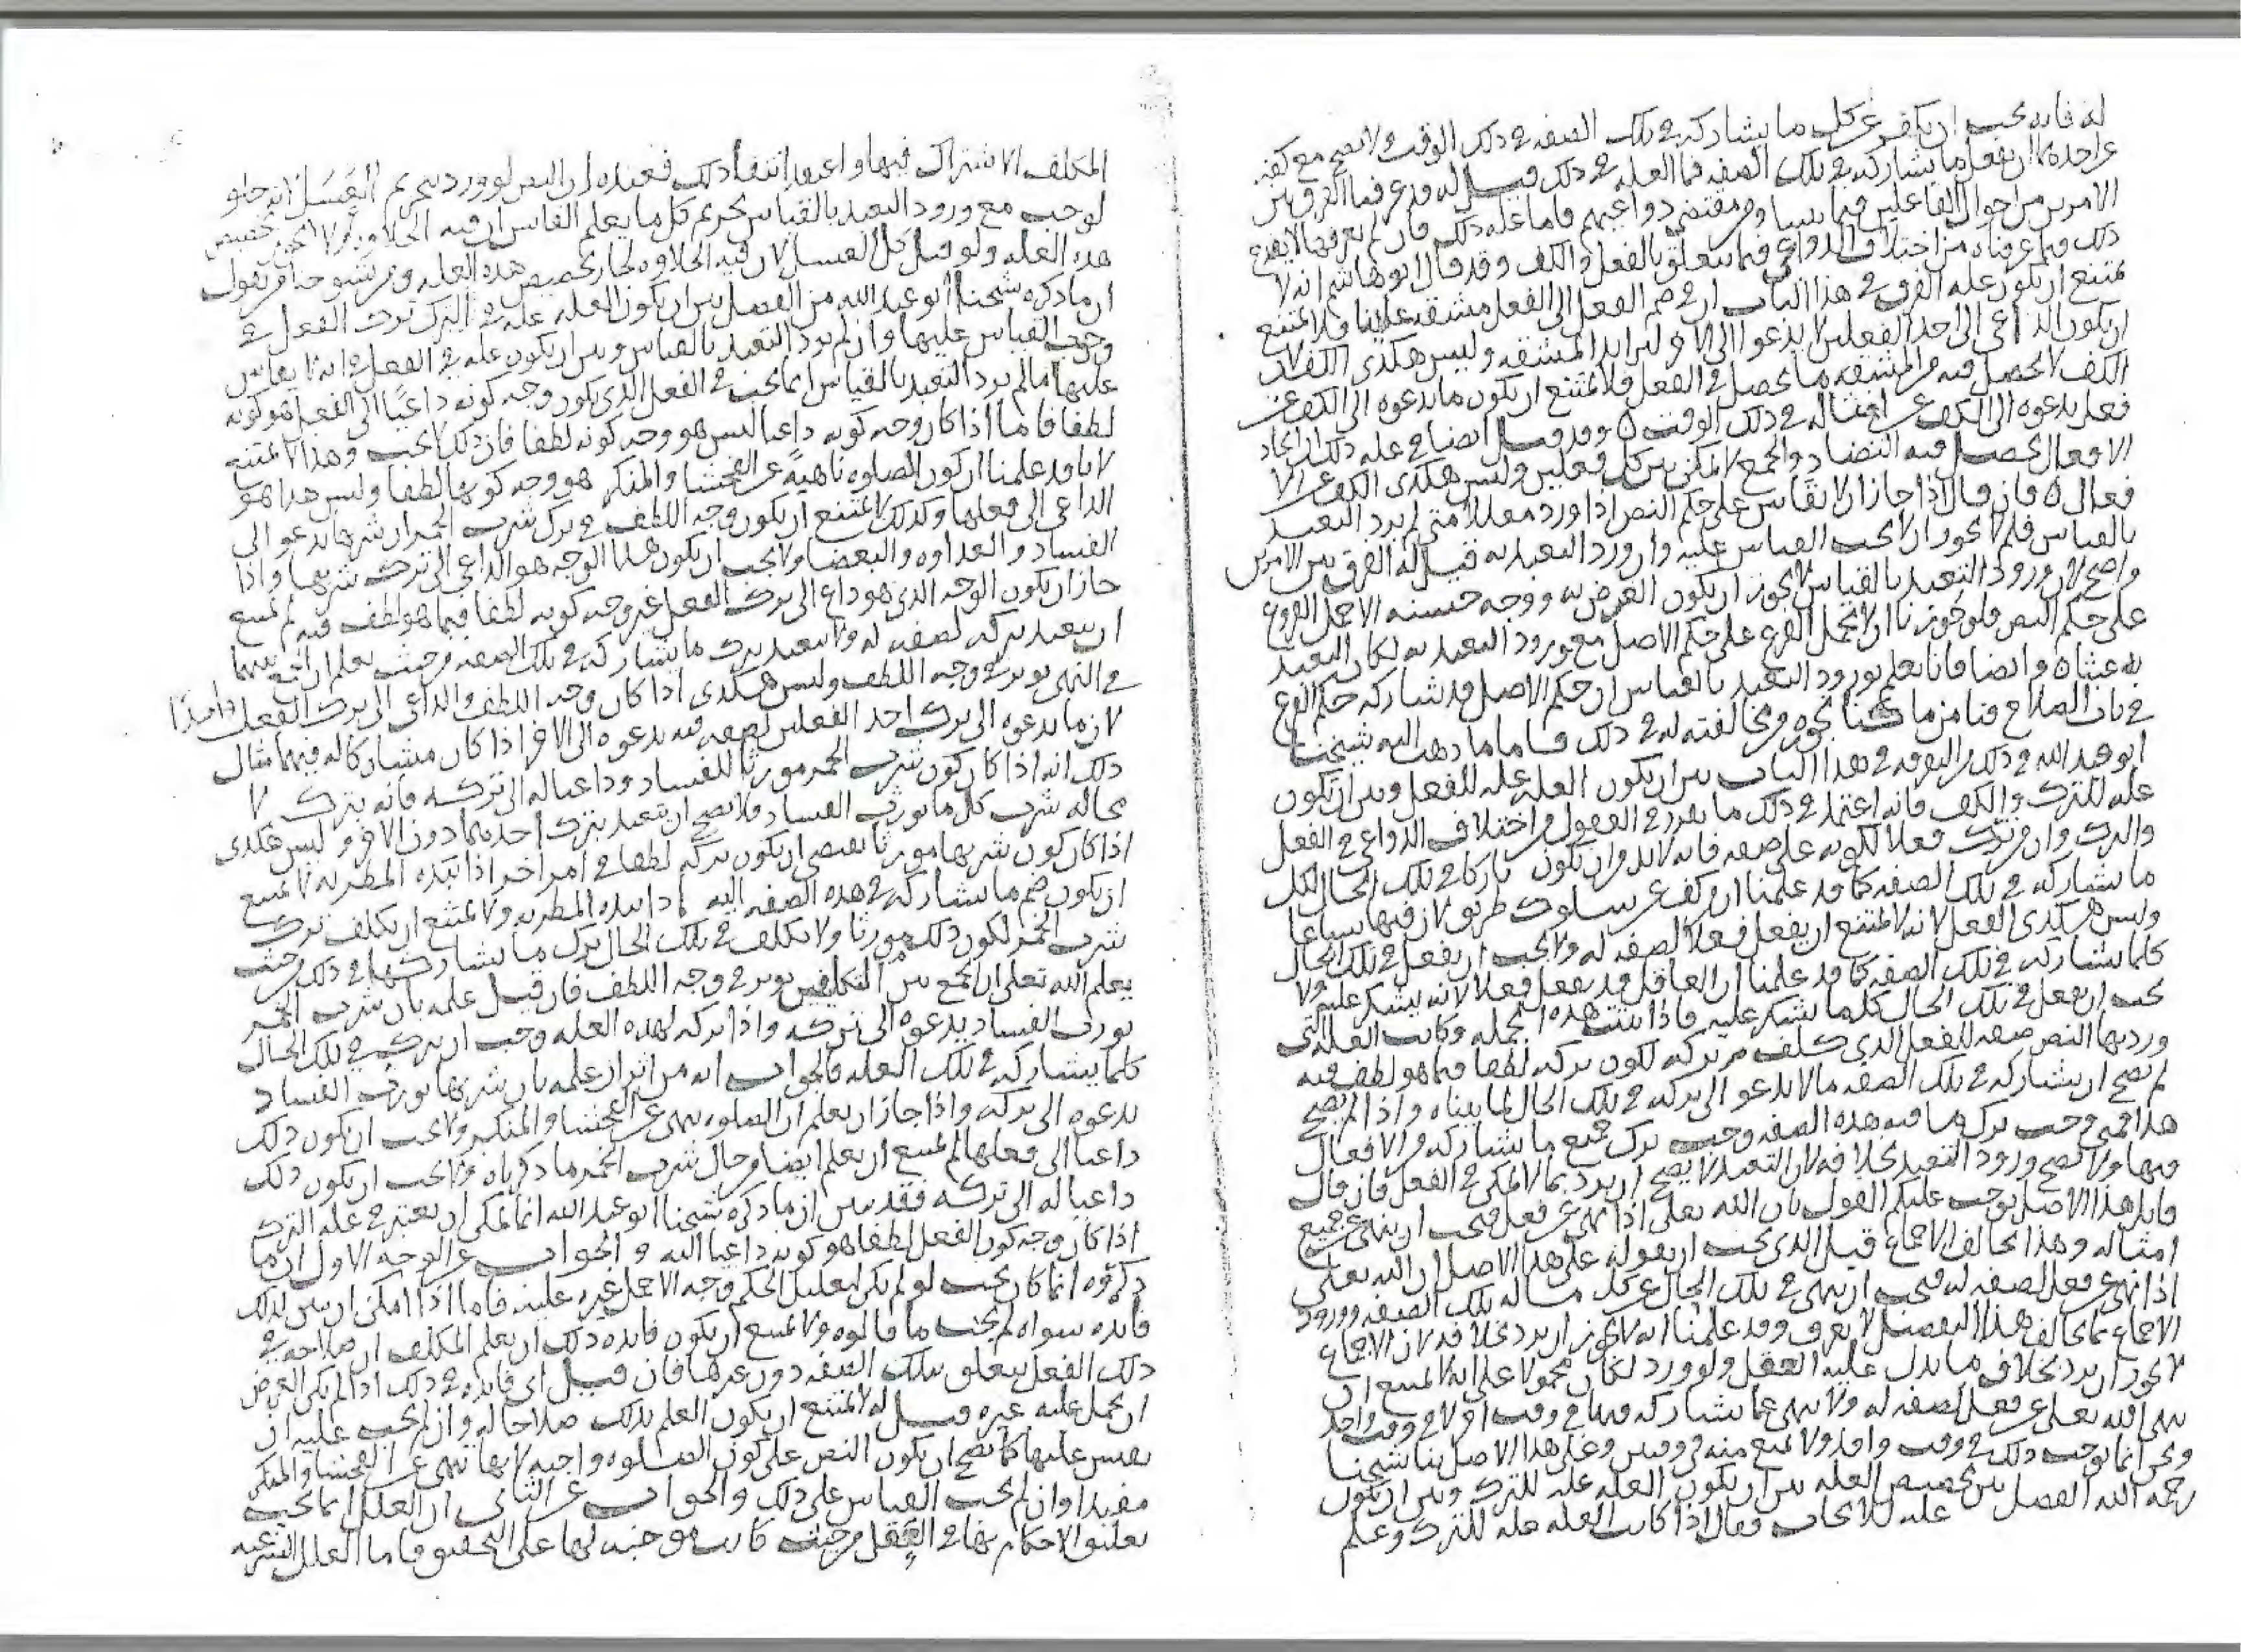 له فانه يجب ان يكف عن كل ما يشاركه في تلك الصفه في ذلك الوقت ولا يصح مع كفه
عن احدهما ان يفعل ما يشاركه في تلك الصفه فما العله في ذلك قيل له قد عرفنا الفرق بين
الامرين من احوال الفاعلين فيما بيننا ومن مقتضى دواعيهم فاما عله ذلك فان لم نعرفها لا يقدح
ذلك فيما عرفناه من اختلاف الدواعي فيما يتعلق بالفعل والكف وقد قال ابو هاشم انه لا
يمتنع ان يكون عله الفرق في هذا الباب ان في ضم الفعل الى الفعل مشقه علينا فلا يمتنع
ان يكون الداعي الى احد الفعلين لا يدعوا الى الاخر لتزايد المشقه وليس هكذى الكف لان
الكف لا يحصل فيه من المشقه ما يحصل في الفعل فلا يمتنع ان يكون ما يدعوه الى الكف عن
فعل يدعوه الى الكف عن امثاله في ذلك الوقت ٥ وقد قيل ايضا في عله ذلك ان ايجاد
الافعال يحصل فيه التضاد والجمع لا يمكن بين كل فعلين وليس هكذى الكف عن الا
فعال ٥ فان قال اذا جاز الا يقاس على حكم النص اذا ورد معللا متى لم يرد التعبد
بالقياس فلم لا يجوز ان لا يجب القياس عليه وان ورد التعبد به قيل له الفرق بين الامرين
واضح لان ورود التعبد بالقياس لا يجوز ان يكون الغرض به ووجه حسنه الا حمل الفروع
على حكم النص فلو جوزنا ان لا يحمل الفرع على حكم الاصل مع ورود التعبد به لكان التعبد
به عبثا ٥ وايضا فانا نعلم بورود التعبد بالقياس ان حكم الاصل قد شاركه حكم الفرع
في باب الصلاح فنامن ما كنا نجوزه من مخالفته له في ذلك فاما ما ذهب اليه شيخنا
ابو عبد الله في ذلك من التفرقه في هذا الباب بين ان يكون العله عله للفعل وبين ان يكون
عله للترك والكف فانه اعتمد في ذلك ما تقرر في العقول من اختلاف الدواعي في الفعل
والترك وان من ترك فعلا لكونه على صفه فانه لابد من ان يكون تاركا في تلك الحال لكل
ما يشاركه في تلك الصفه كما قد علمنا ان من كف عن سلوك طريق لان فيها سباعا
وليس هكذى الفعل لانه لا يمتنع ان يفعل فعلا لصفه له ولا يجب ان يفعل في تلك الحال
كلما يشاركه في تلك الصفه كما قد علمنا ان العاقل قد يفعل فعلا لانه يشكر عليه ولا
يجب ان يفعل في تلك الحال كلما يشكر عليه فاذا ثبتت هذه الجمله وكانت العله التي
ورد بها النص صفه للفعل الذي كلف من تركه لكون تركه لطفا فيما هو لطف فيه
لم يصح ان يشاركه في تلك الصفه ما لا يدعو الى تركه في تلك الحال لما بيناه واذا لم يصح
هذا فيه وجب ترك ما فيه هذه الصفه وجب ترك جميع ما يشاركه من الافعال
فيها ولا يصح ورود التعبد بخلافه لان التعبد لا يصح ان يرد بما لا يمكن في الفعل فان قال
قايل هذا الاصل يوجب عليكم القول بان الله تعلى اذا نهى عن فعل فيجب ان ينهى عن جميع
امثاله وهذا يخالف الاجماع قيل الذي يجب ان يقوله على هذا الاصل ان الله تعلى
اذا نهى عن فعل لصفه له فيجب ان ينهى في تلك الحال عن كل ما له تلك الصفه وورود
الاجماع بما يخالف هذا التفصيل لا يعرف وقد علمنا انه لا يجوز ان يرد بخلافه لان الاجماع
لا يجوز ان يرد بخلاف ما يدل عليه العقل ولو ورد لكان محمولا على انه لا يمتنع ان
ينهى الله تعلى عن فعل لصفه له ولا ينهى عما يشاركه فيها في وقت اخر لا في وقت واحد
ونحن انما نوجب ذلك في وقت واحد ولا نمنع منه في وقتين وعلى هذا الاصل بنا شيخنا
رحمه الله الفصل بين تخصيص العله بين ان يكون العله عله للترك وبين ان يكون
عله للايجاب فقال اذا كانت العله عله للترك وعلم
المكلف الاشتراك فيها واعتقد انتفا ذلك فعنده ان النص لو ورد بتحريم العسل لانه حلو
لوجب مع ورود التعبد بالقياس تحريم كل ما يعلم القاس ان فيه الحلاوه ولا يجوز تخصيص
هذه العله ولو قيل كل العسل لان فيه الحلاوه لجاز تخصيص هذه العله ومن شيوخنا من يقول
ان ما ذكره شيخنا ابو عبد الله من الفصل بين ان يكون العله عله في الترك ترك الفعل في
وجوب القياس عليها وان لم يرد التعبد بالقياس وبين ان يكون عله في الفعل في انه لا يقاس
عليها ما لم يرد التعبد بالقياس انما يجب في الفعل الذي يكون وجه كونه داعيا الى الفعل هو كونه
لطفا فاما اذا كان وجه كونه داعيا ليس هو وجه كونه لطفا فان ذلك لا يجب وهذا لا يمتنع
لانا قد علمنا ان كون الصلوه ناهية عن الفحشا والمنكر هو وجه كونها لطفا وليس هذا هو
الداعي الى فعلها وكذلك لا يمتنع ان يكون وجه اللطف في ترك شرب الخمر ان شربها يدعو الى
الفساد والعداوه والبغضا ولا يجب ان يكون هذا الوجه هو الداعي الى ترك شربها واذا
جاز ان يكون الوجه الذي هو داع الى ترك الفعل غير وجه كونه لطفا فيما هو لطف فيه لم يمتنع
ان يتعبد بتركه لصفه له ولا يتعبد بترك ما يشاركه في تلك الصفه من حيث يعلم ان الجمع بينهما
في النهي يوثر في وجه اللطف وليس هكذى اذا كان وجه اللطف والداعي الى ترك الفعل واحدا
لان ما يدعوه الى ترك احد الفعلين لصفه فيه يدعوه الى الاخر اذا كان مشاركا له فيها مثال
ذلك انه اذا كان كون شرب الخمر مورثا للفساد وداعيا له الى تركه فانه يترك لا
محاله شرب كل ما يورث الفساد فلا يصح ان يتعبد بترك احدهما دون الاخر وليس هكذى
اذا كان كون شربها مورثا يقتضي ان يكون تركه لطفا في امر اخر اذا بهذه الطريه لا يمتنع
ان يكون ضم ما يشاركه في هذه الصفه اليه ولا يمتنع ان يكلف ترك
شرب الخمر لكون ذلك مورثا ولا يكلف في تلك الحال ترك ما يشاركها في ذلك من حيث
يعلم الله تعلى ان الجمع بين التكليفين يوثر في وجه اللطف فان قيل علمه بان شرب الخمر
يورث الفساد يدعوه الى تركه واذا تركه لهذه العله وجب ان يترك في تلك الحال
كلما يشاركه في تلك العله فالجواب انه من اين ان علمه بان شربها يورث الفساد
يدعوه الى تركه واذا جاز ان يعلم ان الصلوه تنهى عن الفحشا والمنكر ولا يجب ان يكون ذلك
داعيا الى فعلها لم يمتنع ان يعلم ايضا من حال شرب الخمر ما ذكرناه ولا يجب ان يكون ذلك
داعيا له الى تركه فقد تبين ان ما ذكره شيخنا ابو عبد الله انما يمكن ان يعتبر في عله الترك
اذا كان وجه كون الفعل لطفا هو كونه داعيا اليه والجواب عن الوجه الاول ان ما
ذكروه انما كان يجب لو لم يكن لتعليل الحكم وجه الا حمل غيره عليه فاما اذا امكن ان يبين لذلك
فايده سواه لم يجب ما قالوه ولا يمتنع ان يكون فايده ذلك ان يعلم المكلف ان صلاحه في
ذلك الفعل يتعلق بتلك الصفه دون غيرها فان قيل اى فايده في ذلك اذا لم يكن الغرض
ان يحمل عليه غيره قيل له لا يمتنع ان يكون العلم بذلك صلاحا له وان لم يجب عليه ان
يقيس عليها كما يصح ان يكون النص على كون الصلوه واجبه لانها تنهى عن الفحشا والمنكر
مفيدا وان لم يجب القياس على ذلك والجواب عن الثاني ان العلل انما يجب
تعليق الاحكام بها في العقل من حيث كانت موجبه لها على التحقيق فاما العلل الشرعيه